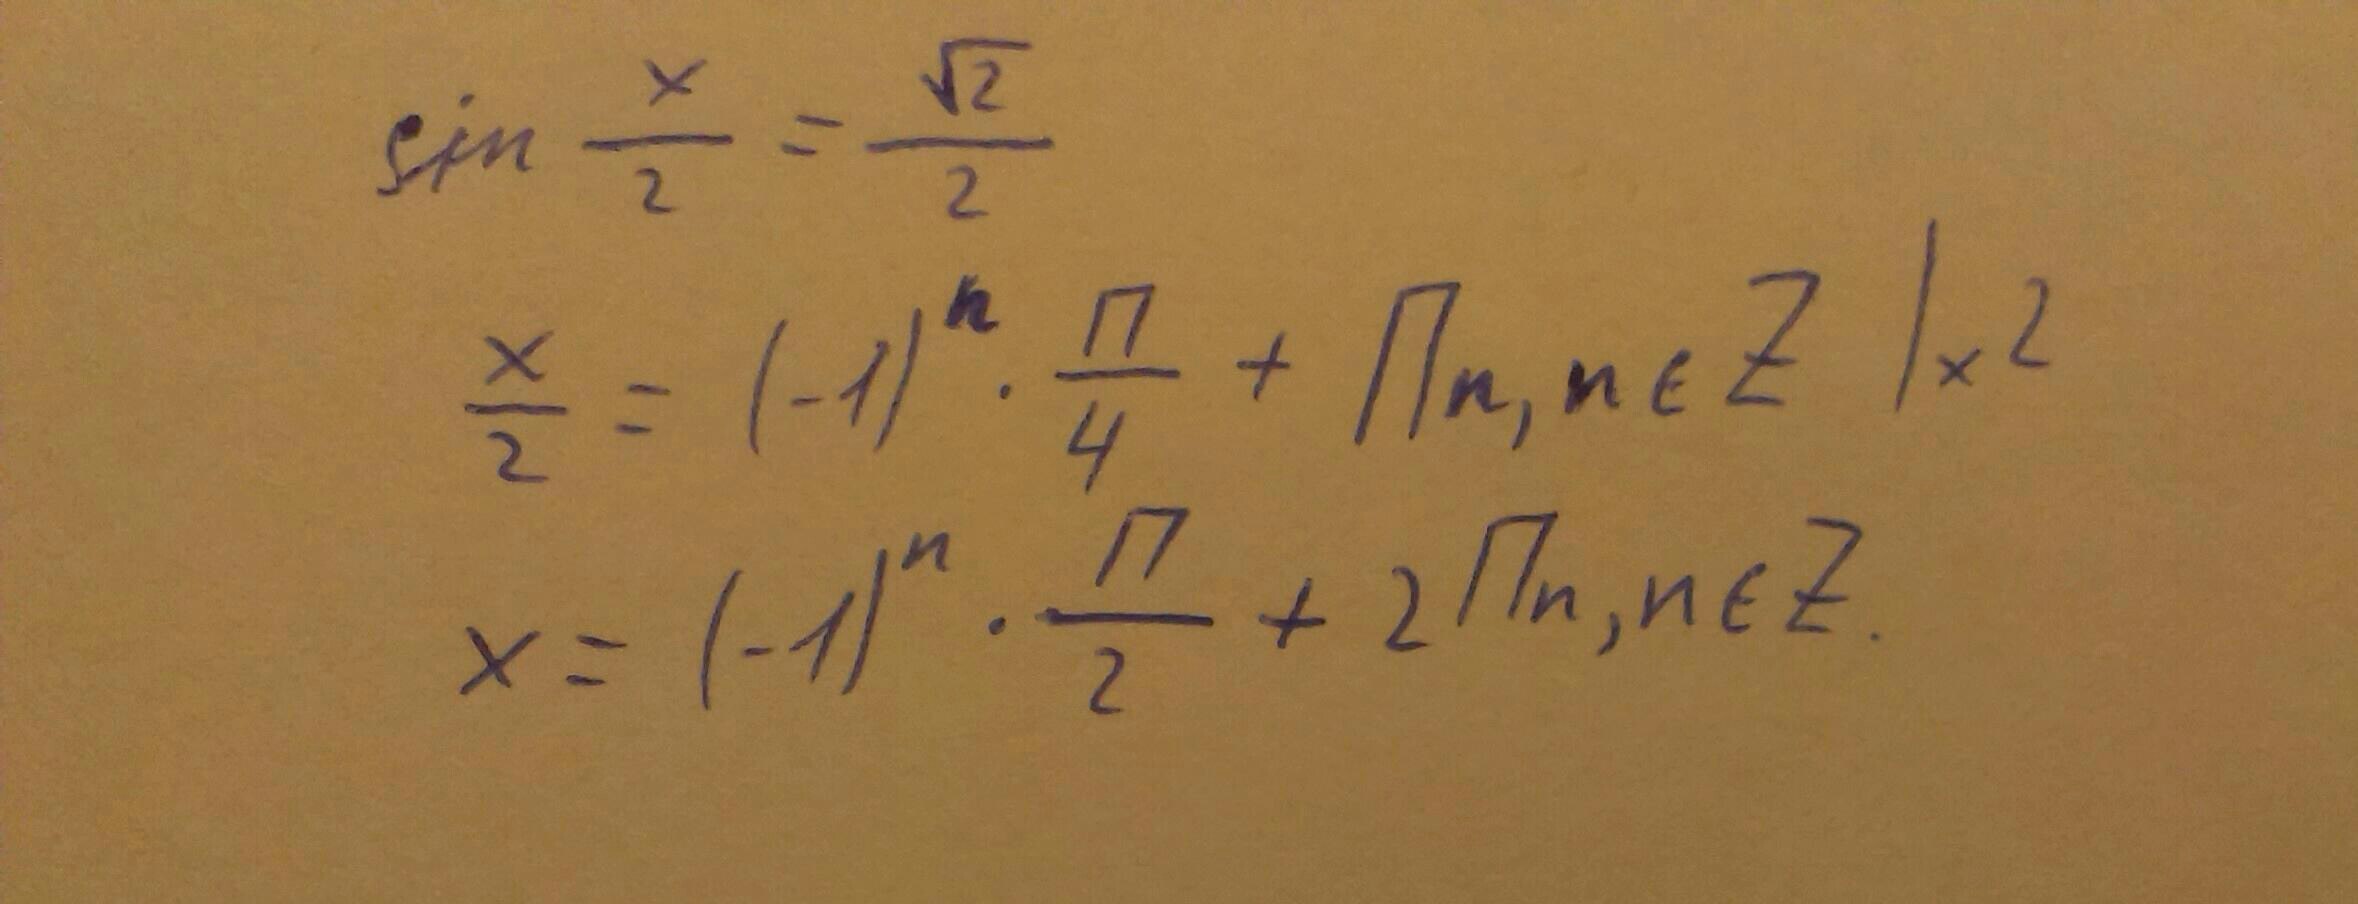 sin x/2 = √2/2
x/2 = (-1)^n · П/4 + Пn, n ∈ Z | x 2
x = (-1)^n · П/2 + 2Пn, n ∈ Z.